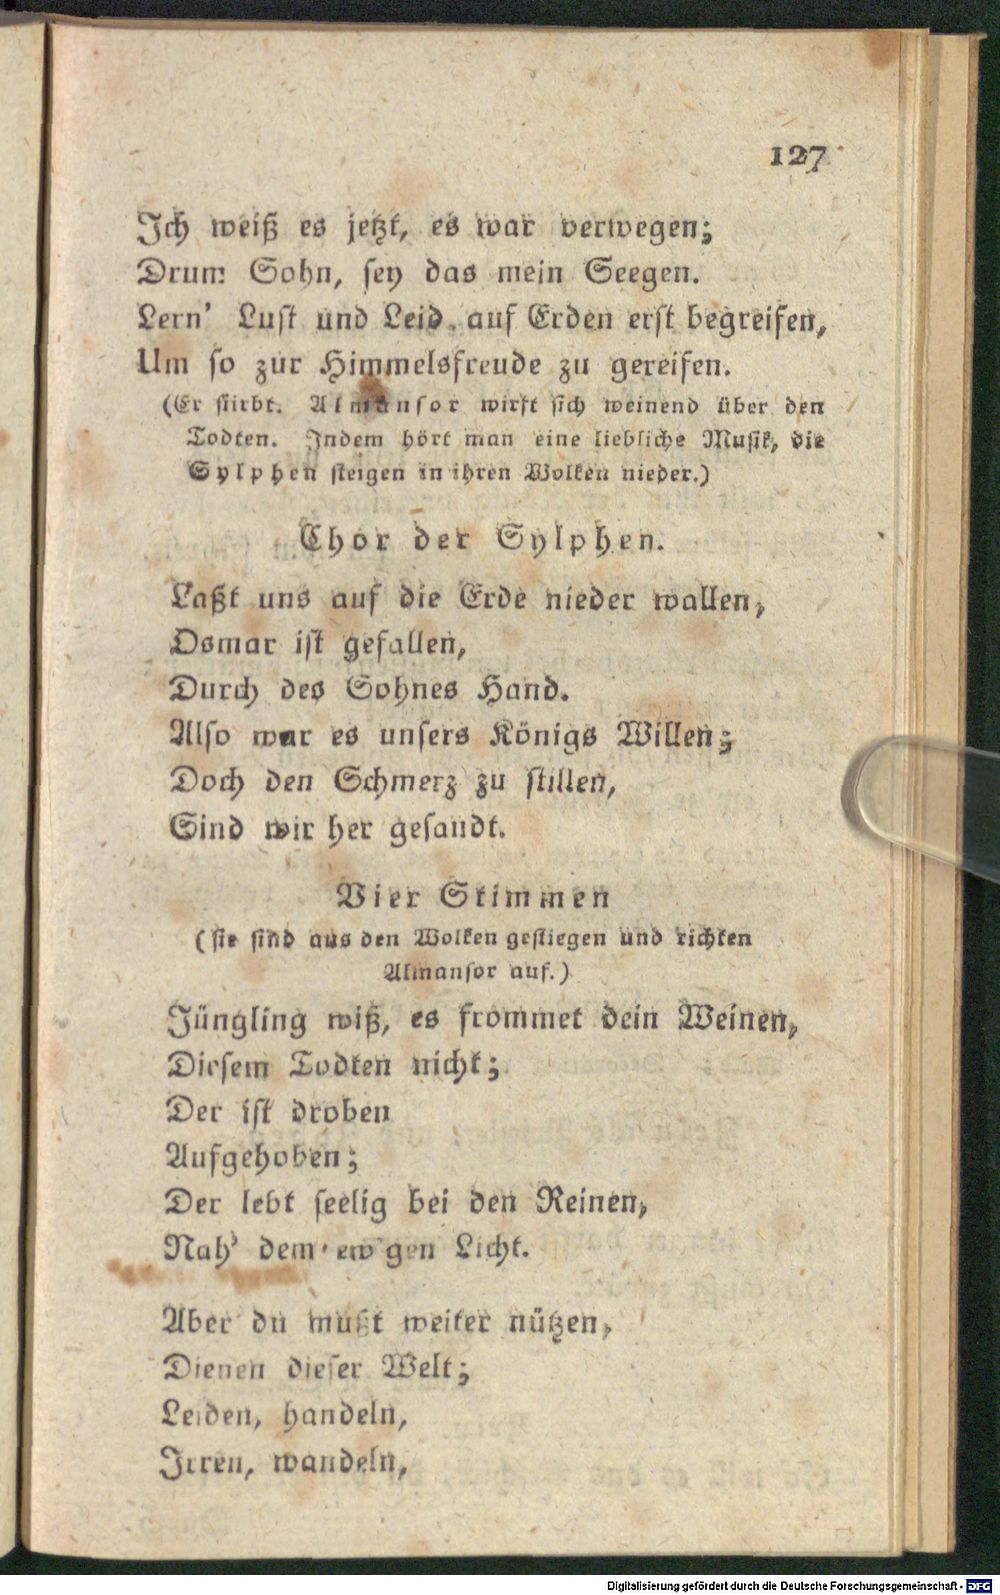 127
Ich weiß es jetzt, es war verwegen;
Drum Sohn, sey das mein Seegen.
Lern' Lust und Leid auf Erden erst begreifen,
Um so zur Himmelsfreude zu gereifen.
(Er stirbt. Almansor wirft sich weinend über den
Todten. Indem hört man eine liebliche Musik, die
Sylphen steigen in ihren Wolken nieder.)
Chor der Sylphen.
Laßt uns auf die Erde nieder wallen,
Osmar ist gefallen,
Durch des Sohnes Hand.
Also war es unsers Königs Willen;
Doch den Schmerz zu stillen,
Sind wir her gesandt.
Vier Stimmen
(sie sind aus den Wolken gestiegen und richten
Almansor auf.)
Jüngling wiß, es frommet dein Weinen,
Diesem Todten nicht;
Der ist droben
Aufgehoben;
Der lebt seelig bei den Reinen,
Nah' dem ew'gen Licht.
Aber du mußt weiter nützen,
Dienen dieser Welt;
Leiden, handeln,
Irren, wandeln,
Digitalisierung gefördert durch die Deutsche Forschungsgemeinschaft - DFG